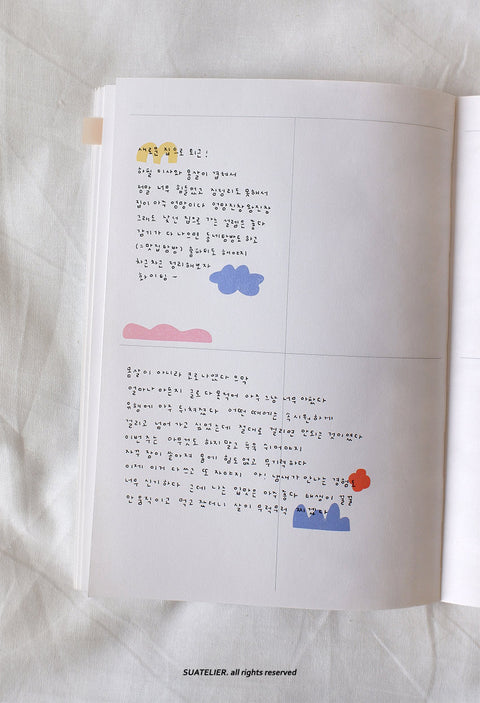 새로운 집으로 퇴근!
하필 이사와 몸살이 겹쳐서
정말 너무 힘들었고 짐정리도 못해서
집이 아주 엉망이다 엉망진창왕진창
그래도 낯선 집으로 가는 설렘은 좋다
감기가 다 나으면 동네탐방도 하고
(=맛집탐방) 홈파티도 해야지
차근차근 정리해보자
화이팅~
몸살이 아니라 코로나였다 으악
얼마나 아픈지 글로 다 못적어 아주 그냥 너무 아팠다
유행에 아주 뒤쳐졌다 어떤 때에는 속 시원하게
걸리고 넘어가고 싶었는데 절대로 걸리면 안되는 것이였다
이번주는 아무것도 하지말고 푹푹 쉬어야지
자꾸 잠이 쏟아져 몸에 힘도 없고 무기력하다
이제 이거 다 쓰고 또 자야지 아! 냄새가 안나는 경험도
너무 신기하다 근데 나는 입맛은 아주 좋다
안 움직이고 먹고 잤더니 살이 무럭무럭 찌겠다
SUATELIER. all rights reserved